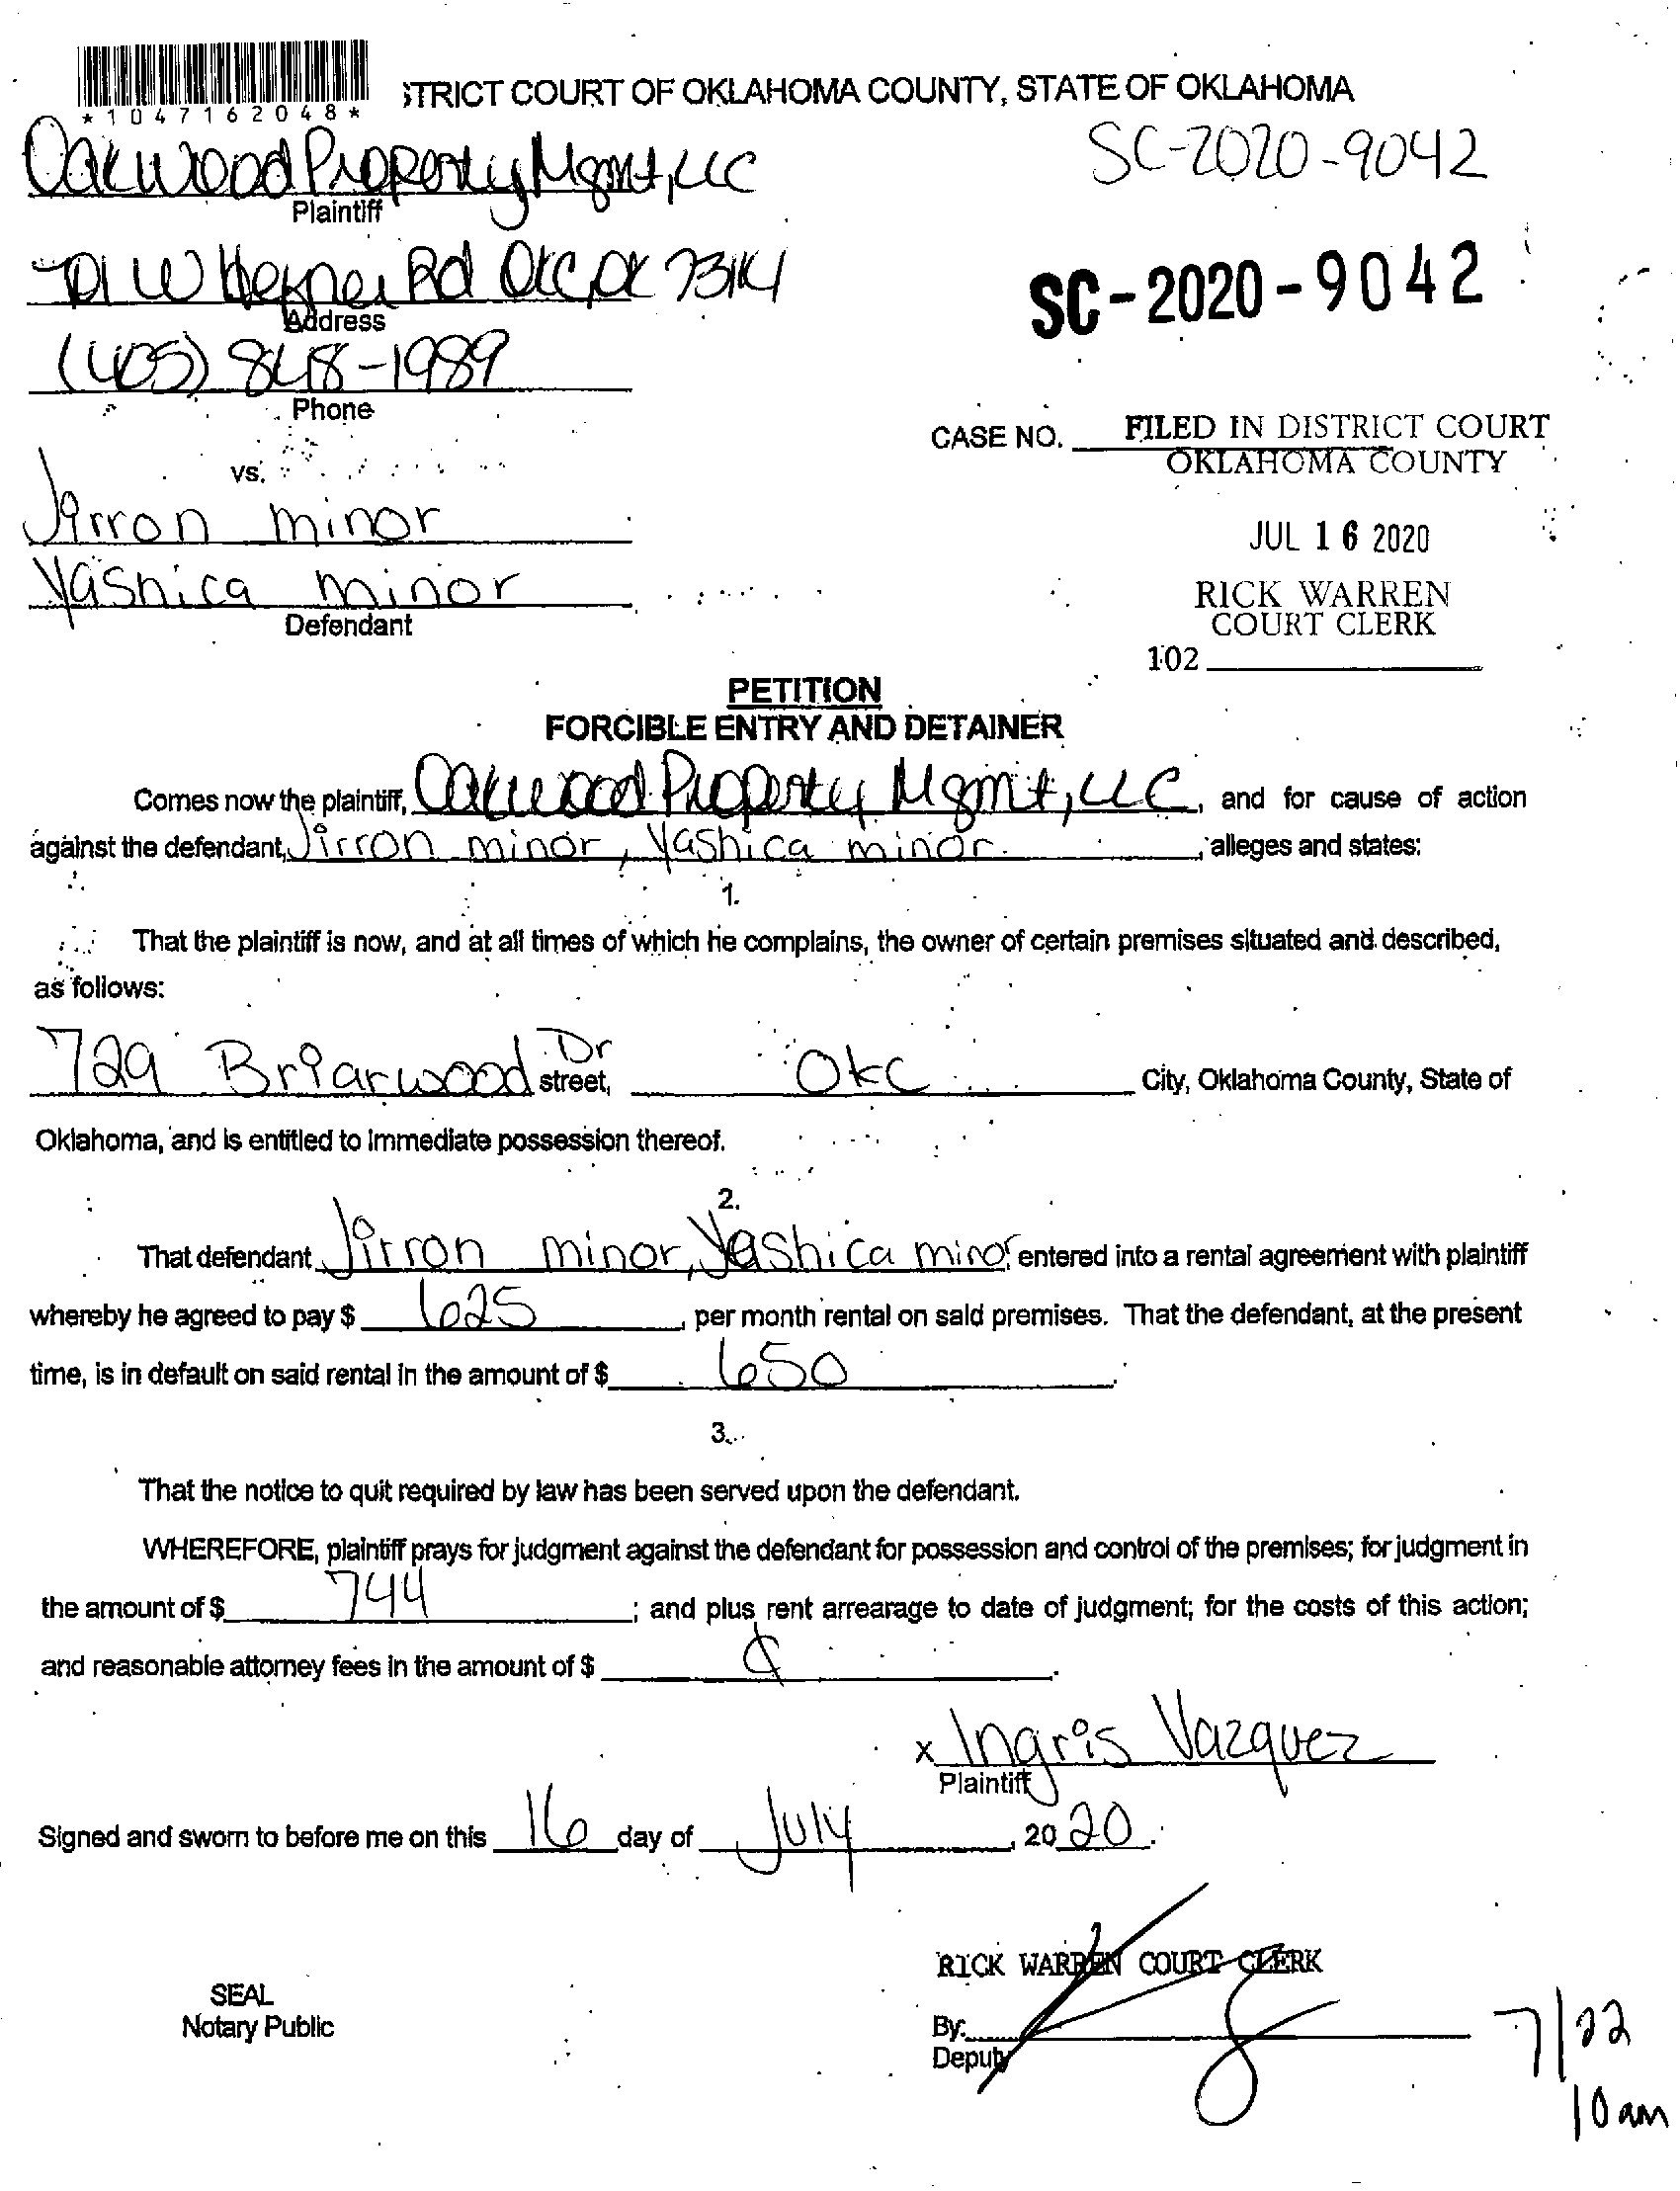 *1047162048*
STRICT COURT OF OKLAHOMA COUNTY, STATE OF OKLAHOMA
Oakwood Property Mgmt, LLC
Plaintiff
SC-2020-9042
701 W Hefner Rd OKC, OK 73114
Address
SC-2020-9042
(405) 848-1989
Phone
CASE NO.
FILED IN DISTRICT COURT
OKLAHOMA COUNTY
vs.
Jirron minor
JUL 16 2020
Yashica minor
Defendant
RICK WARREN
COURT CLERK
102
PETITION
FORCIBLE ENTRY AND DETAINER
Comes now the plaintiff, Oakwood Property Mgmt, LLC, and for cause of action
against the defendant, Jirron minor, Yashica minor, alleges and states:
1.
That the plaintiff is now, and at all times of which he complains, the owner of certain premises situated and described,
as follows:
729 Briarwood Dr street, OKC City, Oklahoma County, State of
Oklahoma, and is entitled to immediate possession thereof.
2.
That defendant Jirron minor, Yashica minor entered into a rental agreement with plaintiff
whereby he agreed to pay $ 625, per month rental on said premises. That the defendant, at the present
time, is in default on said rental in the amount of $ 650.
3.
That the notice to quit required by law has been served upon the defendant.
WHEREFORE, plaintiff prays for judgment against the defendant for possession and control of the premises; for judgment in
the amount of $ 744; and plus rent arrearage to date of judgment; for the costs of this action;
and reasonable attorney fees in the amount of $
x Ingris Vazquez
Plaintiff
Signed and sworn to before me on this 16 day of July, 2020.
RICK WARREN COURT CLERK
SEAL
Notary Public
By:
Deputy
7/22
10am